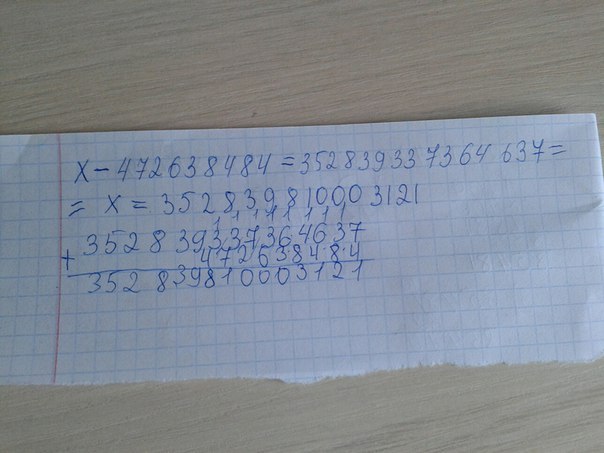 x - 472638484 = 352839337364637 =
= x = 352839810003121
1 1 1 1 1 1 1 1
352839337364637
+ 472638484
352839810003121